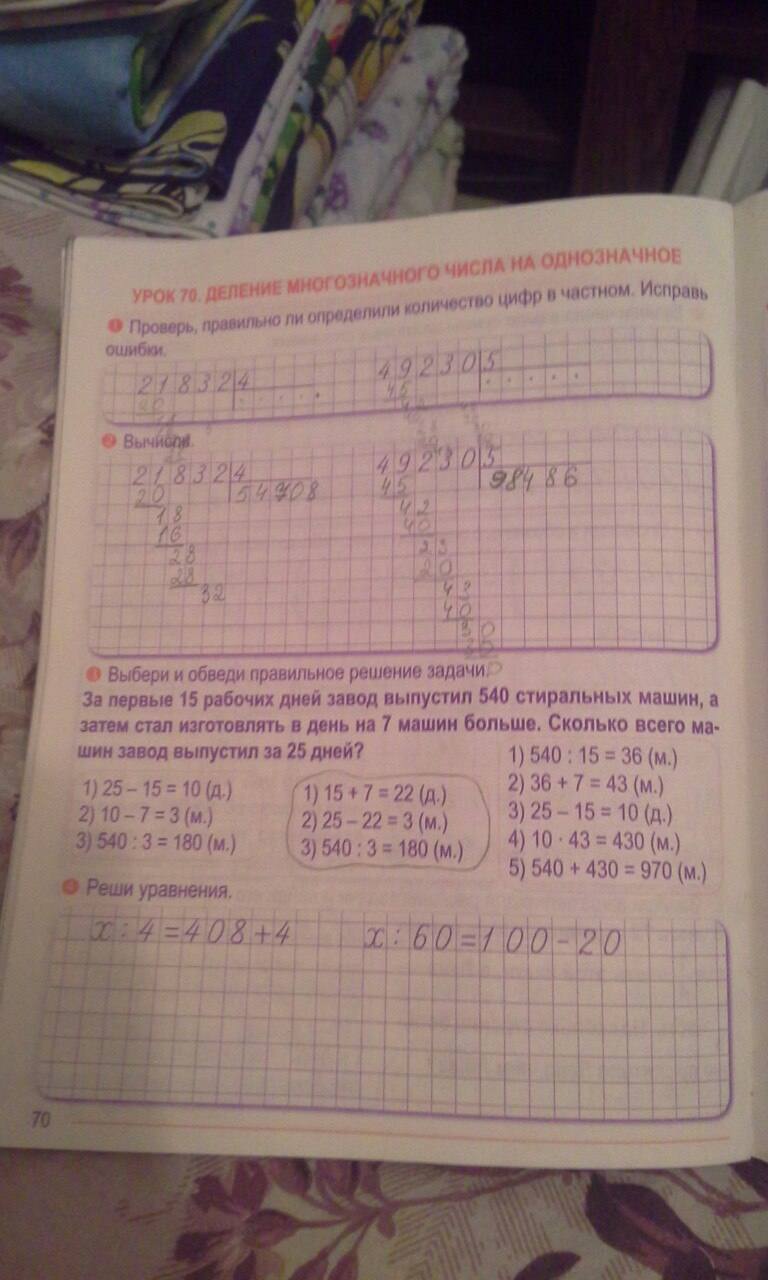 УРОК 70. ДЕЛЕНИЕ МНОГОЗНАЧНОГО ЧИСЛА НА ОДНОЗНАЧНОЕ
1 Проверь, правильно ли определили количество цифр в частном. Исправь
ошибки.
218324 492305
20 45
2 Вычисли.
218324 492305
20 54708 45 98486
18 42
16 40
28 23
28 20
32 43
40
30
0
3 Выбери и обведи правильное решение задачи.
За первые 15 рабочих дней завод выпустил 540 стиральных машин, а
затем стал изготовлять в день на 7 машин больше. Сколько всего ма-
шин завод выпустил за 25 дней?
1) 25 – 15 = 10 (д.)
2) 10 – 7 = 3 (м.)
3) 540 : 3 = 180 (м.)
1) 15 + 7 = 22 (д.)
2) 25 – 22 = 3 (м.)
3) 540 : 3 = 180 (м.)
1) 540 : 15 = 36 (м.)
2) 36 + 7 = 43 (м.)
3) 25 – 15 = 10 (д.)
4) 10 · 43 = 430 (м.)
5) 540 + 430 = 970 (м.)
4 Реши уравнения.
x : 4 = 408 + 4 x : 60 = 100 – 20
70